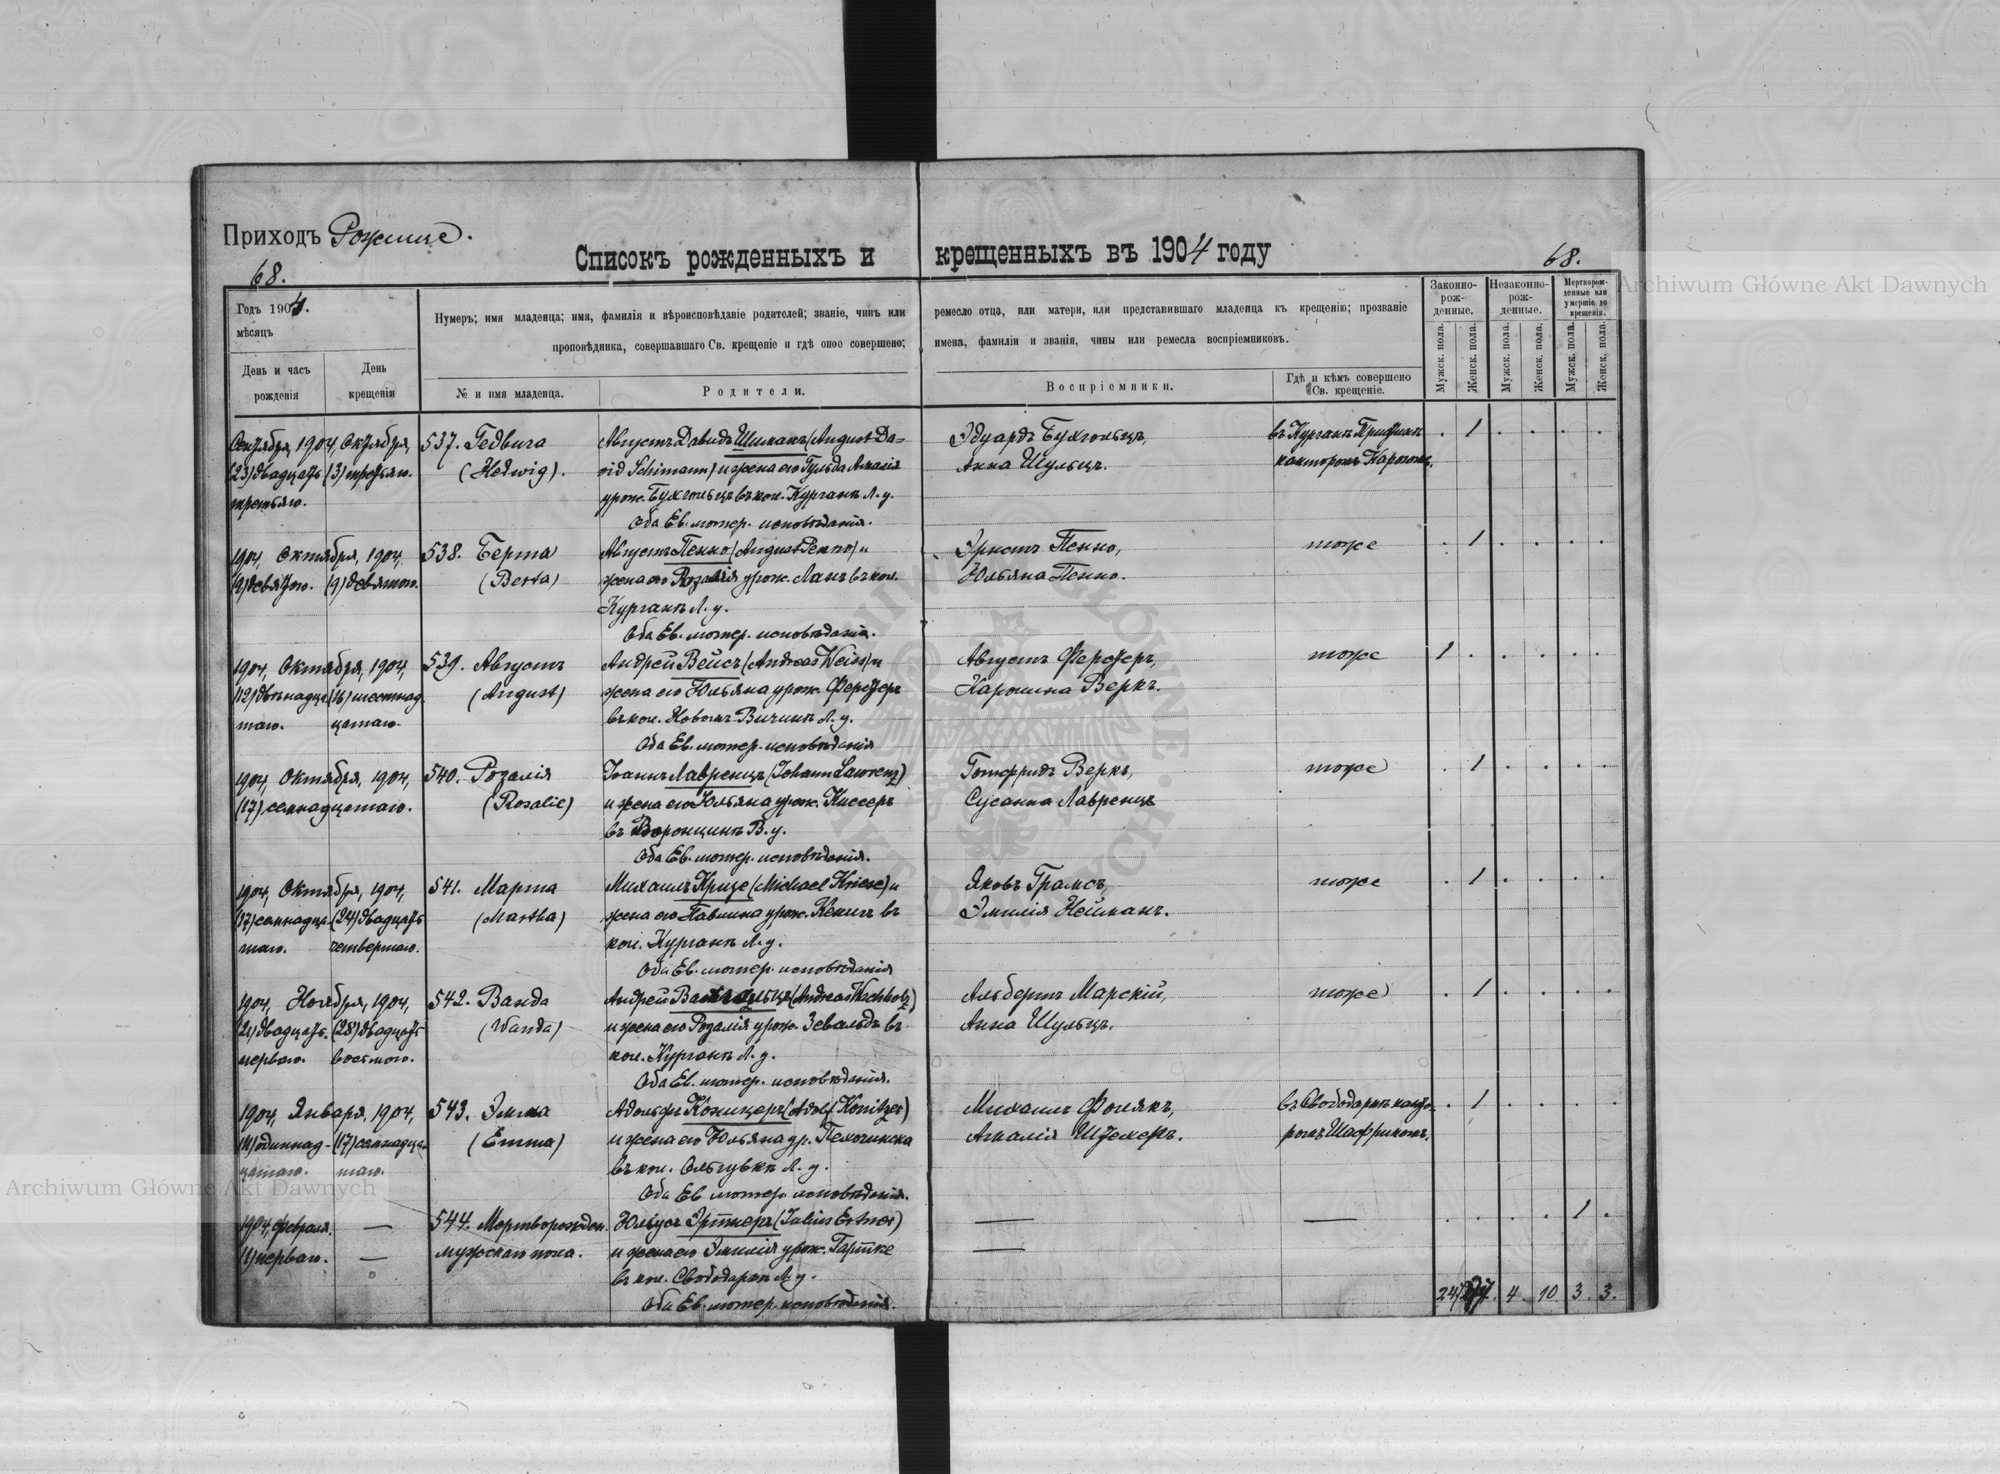 Приходъ Рожище.
Списокъ рожденныхъ и крещенныхъ въ 1904 году
68.
68.
Годъ 1904.
мѣсяцъ
День и часъ рожденія
День крещенія
Нумеръ; имя младенца; имя, фамилія и вѣроисповѣданіе родителей; званіе, чинъ или ремесло отца, или матери, или представившаго младенца къ крещенію; прозваніе
проповѣдника, совершавшаго Св. крещеніе и гдѣ оное совершено; имена, фамиліи и званія, чины или ремесла воспріемниковъ.
№ и имя младенца.
Родители.
Воспріемники.
Гдѣ и кѣмъ совершено Св. крещеніе.
Законно-рож-денные.
Незаконно-рож-денные.
Мертворож-денные или умершіе до крещенія.
Мужск. пола.
Женск. пола.
Мужск. пола.
Женск. пола.
Мужск. пола.
Женск. пола.
1904, Октября,
(23) двадцать (3) третьяго.
третьяго.
537. Гедвига
(Hedwig).
Августъ Давидъ Шиманъ (August Da-
vid Schimann) и жена его Гульда Амалія
урож. Бухгольцъ въ кол. Курганъ Л. у.
Оба Ев. лютер. исповѣданія.
Эдуардъ Бухгольцъ,
Анна Шульцъ.
. 1 . . . .
1904, Октября, 1904,
(9) девятого. (9) девятого.
538. Берта
(Berta)
Августъ Пенно (August Penno) и
жена его Розалія урож. Ланъ въ кол.
Курганъ Л. у.
Оба Ев. лютер. исповѣданія.
Эрнстъ Пенно,
Юльяна Пенно.
тоже
. 1 . . . .
1904, Октября, 1904,
(12) двѣнадца (16) шестнад
таго. цатаго.
539. Августъ
(August)
Андрей Вейсъ (Andreas Weiss) и
жена его Юльяна урож. Ферстеръ
въ кол. Новомъ-Вичинѣ Л. у.
Оба Ев. лютер. исповѣданія
Августъ Ферстеръ,
Каролина Веркъ.
тоже
1 . . . . .
1904, Октября, 1904,
(17) семнадцатаго.
540. Розалія
(Rosalie)
Іоаннъ Лавренцъ (Johann Lawrenz)
и жена его Юльяна урож. Киссеръ
въ Воронцинѣ В. у.
Оба Ев. лютер. исповѣданія.
Готфридъ Веркъ,
Сусанна Лавренцъ
тоже
. 1 . . . .
1904, Октября, 1904,
(17) семнадца- (24) двадцать
таго. четвертаго.
541. Марта
(Martha)
Михаилъ Кризе (Michael Kriese) и
жена его Павлина урож. Кенигъ въ
кол. Курганъ Л. у.
Оба Ев. лютер. исповѣданія
Яковъ Грамсъ,
Эмилія Нейманъ.
тоже
. 1 . . . .
1904, Ноября, 1904,
(21) двадцать (28) двадцать
перваго. восьмого.
542. Ванда
(Wanda)
Андрей Вахгольцъ (Andreas Wachholz)
и жена его Розалія урож. Зевальдъ въ
кол. Курганъ Л. у.
Оба Ев. лютер. исповѣданія.
Альбертъ Марскій,
Анна Шульцъ.
тоже
. 1 . . . .
1904, Января, 1904,
(11) одиннад- (17) семнадца-
цатаго. таго.
543. Эмма
(Emma)
Адольфъ Коницеръ (Adolf Konitzer)
и жена его Юльяна ур.
въ кол. Ольгувкѣ Л. у.
Оба Ев. лютер. исповѣданія.
Михаилъ Фолякъ,
Амалія Штехеръ.
въ Свободаркѣ канто-
ромъ Шафрикомъ.
. 1 . . . .
1904, февраля.
(1) перваго.
544. Мертворожден.
мужскаго пола.
Юліусъ Эртнеръ (Julius Ertner)
и жена его Эмилія урож. Гартке
въ кол. Свободаркѣ Л. у.
Оба Ев. лютер. исповѣданія.
. . . . 1 .
4. 10. 3. 3.
Archiwum Główne Akt Dawnych
Archiwum Główne Akt Dawnych